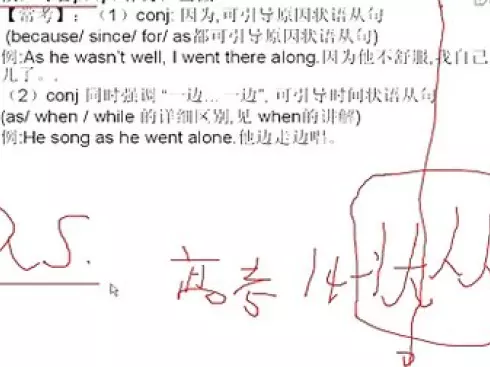 【常考】：（1）conj: 因为,可引导原因状语从句
(because/ since/ for/ as都可引导原因状语从句)
例:As he wasn't well, I went there along.因为他不舒服,我自己
儿了。.
（2）conj 同时强调 “一边…一边”, 可引导时间状语从句
(as/ when / while 的详细区别,见 when的讲解)
例:He song as he went alone.他边走边唱。
as.
高考 14